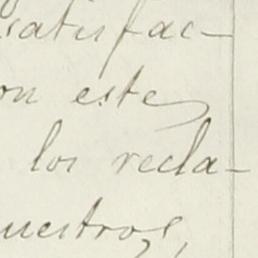 satisfac-
on este
los recla-
uestros,